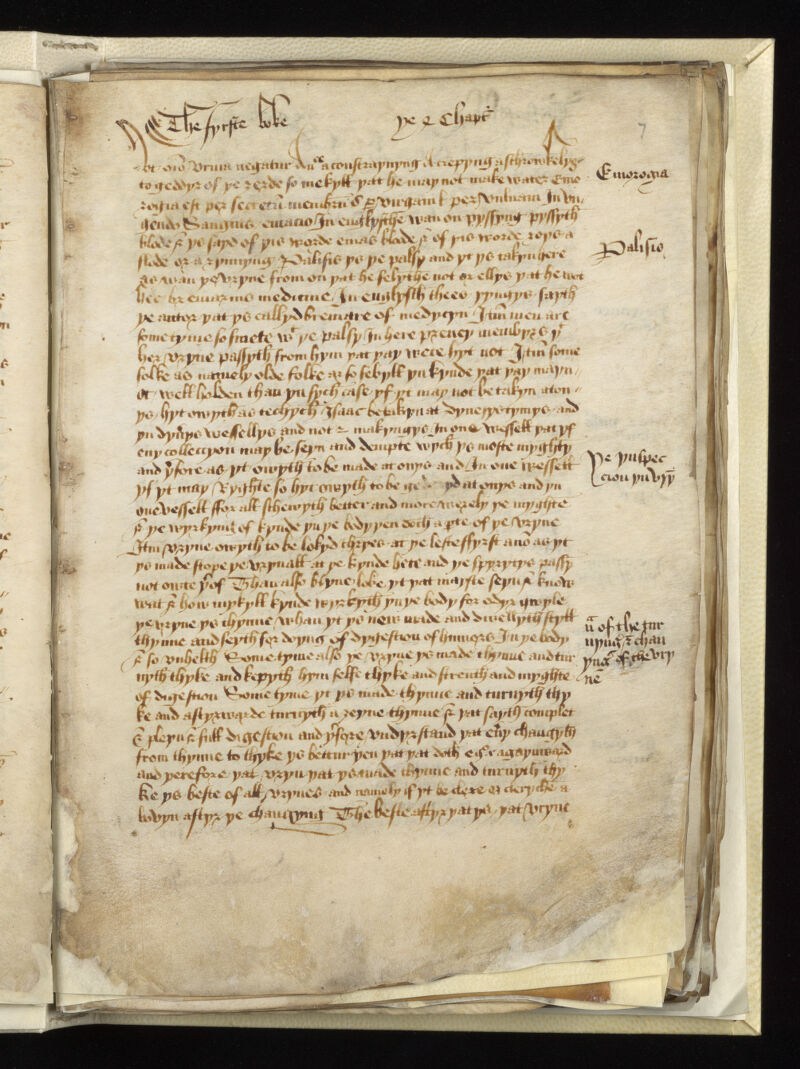 The fyrste boke ye 2 Chapt
7
ot oīo Vrina negatur a constraynyng A crepyng a schrowkelyg
to geddyr of ye zerde so mekyll yat he may not make water Emo
rogia est per secretū membrū virgam per Vulvam In un
Sanguis In englysche wan on pyssyng pyssyth
blode & ys sayd of yis worde emas blode & of yis worde roys a
flode or a rynnyng Palisis ys ye palsy and yt ys takyn here
as wan ye vryne from on yat he felythe not or ellys yat he wot
medicine In englysch thees rymys sayth
ye autor yat ys callyd of medycyn Itm men are
some tyme so smete wt ye palsy In here prevey membrys yt
her vryne passyth from hym yat yay wete hyt not Itm some
folke as namely olde folke ar so febyll yn kynde yat yay mayn
ot well holden than yn sych case yf yt may not be takyn aton
ys hyt owyth as techyth Isaac be takyn at dyverse tymys and
yn dyvers wessellys and not 2 makyngys In one wessell yat yf
eny colleccyon may be seyn and dempte wych ys moste myghty
and yfore as yt owyth to be made at onys and In one wessell
yf yt may Ryghte so hyt owyth to be at onys and yn
one vessell ffor all schewyth better and more verely ye myghte
& ye wyrkyng of kynde yn ye body yen doth a pte of ye vryne
Itm vryne owyth to be lokyd thryes at ye leste ffyrst anoō as yt
ys made stope ye vrynall at ye kynde hete and ye spyrytys passy
not owte yof Than also blyue loke yt yat mayste seyn & know
wat & how mykyll kynde wyrkyth yn ye body for odyr qwyle
ye vryne ys thynne whan yt ys new made and dwellyth styll
thynne and seyth for doyng of dygestion of humors In ye body
& so vnhelth Some tyme also ye vryne ys made thynne and tur
nyth thyke and kepyth hym selfe thyke and strenth and myghte
of digestion Some tyme yt ys made thynne and turnyth thy
ke and aftyrwarde turnyth a zeyne thynne & yat sayth complet
& pleyn & full digestion and yfore vndyrstand yat eny chaugyth
from thynne to thyke ys bettur yen yat yat doth agaynward
and yerefore yat vryn yat ys made thynne and turnyth thy
ke ys beste of all vrynes and namely if yt be clere or cleryche a
bovyn aftyr ye chaunyng The beste aftyr yat ys yat vryne
Emorogia
Palisis
ye ynspec
cion yn vry
of the tur
nyng & chan
yng of the vry
ne